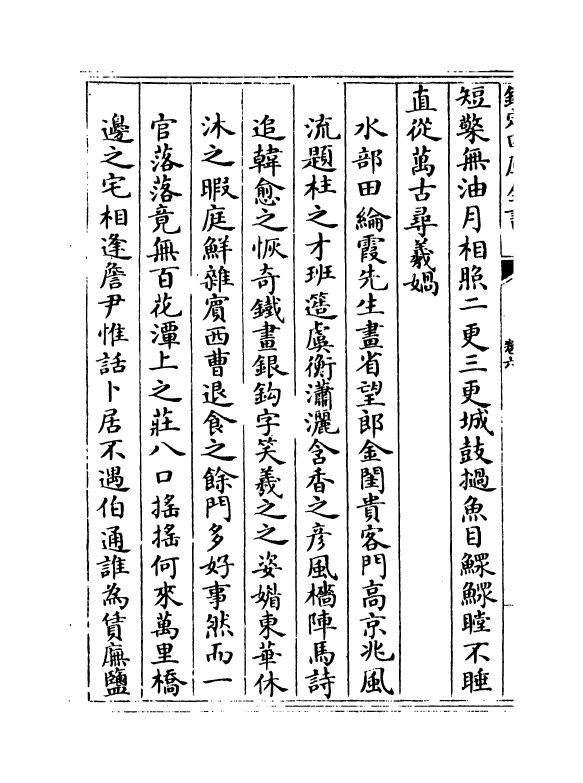 欽定四庫全書
卷六
短檠無油月相照二更三更城鼓撾魚目鰥鰥瞠不睡
直從萬古尋羲媧
水部田綸霞先生畫省望郎金閨貴客門高京兆風
流題柱之才班簉虞衡瀟灑含香之彥風檣陣馬詩
追韓愈之恢奇鐵畫銀鈎字笑羲之之姿媚東華休
沐之暇庭鮮雜賓西曹退食之餘門多好事然而一
官落落竟無百花潭上之莊八口搖搖何來萬里橋
邊之宅相逢詹尹惟話卜居不遇伯通誰為賃廡鹽